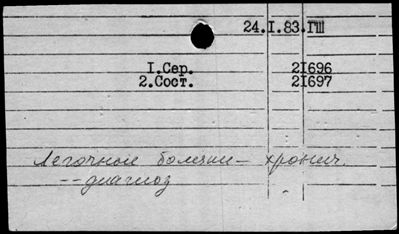 24.I.83.ГШ
I.Сер. 21696
2.Сост. 21697
Легочные болезни - хронич.
--диагноз